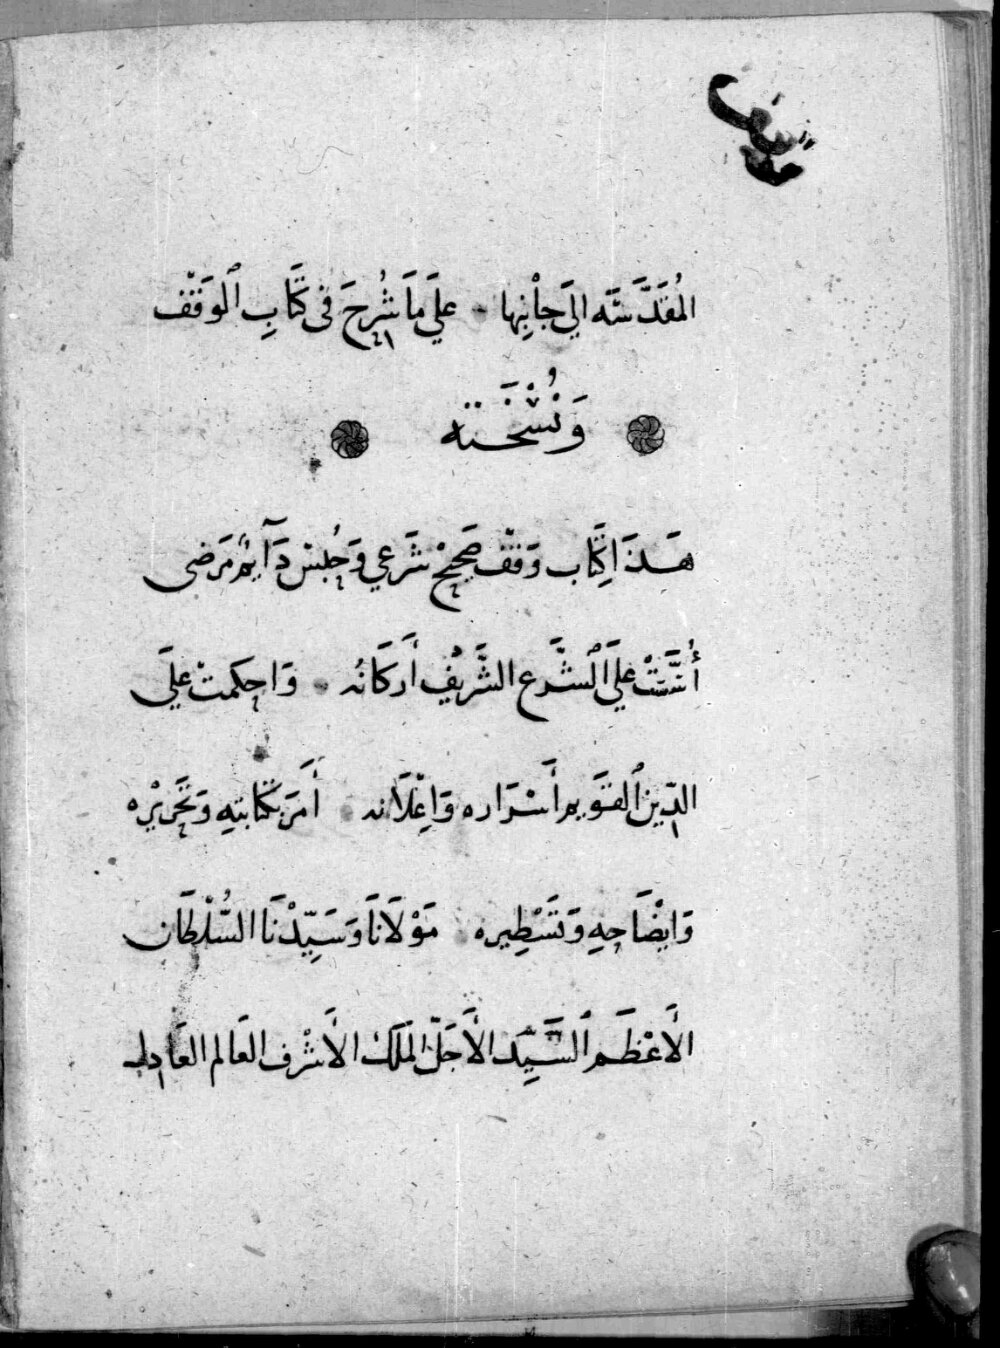 المُقَدَّسَة الَي جاْنِبها ۰ علَي مَا شُرِحَ فى كتَابِ الوَقْف
وَنُسْخَته
هَذَا كِتَاب وَقْف صَحِيْح شَرَعي وَحُبس دَآيم مَرَضى
أُسّسَتْ علَي الشَّرع الشَّريْفِ أَركَانُه ۰ وَاحكمتْ علَي
الدِّين القَوِيم أَسْرَاره وَاعْلَانه ۰ أَمَرَ بكتَابتهِ وَتَحَريْره
وَايْضَاحهِ وَتَسْطِيره ۰ مَوْلَانَا وَسَيِّدْنَا السُّلْطَان
الأَعْظَم السَّيِّد الأَجَلّ المَلَك الأَشْرف العَالم العَادل